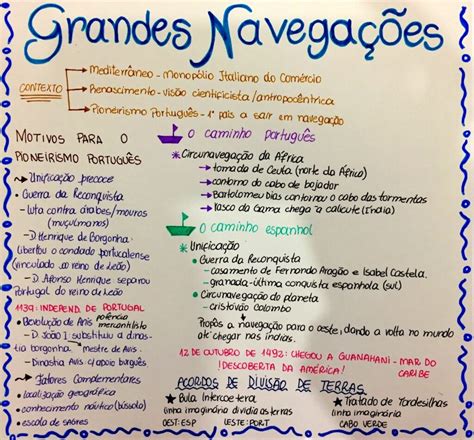 Grandes Navegações
CONTEXTO
→ Mediterrâneo - monopólio Italiano do Comércio
→ Renascimento - visão cientificista / antropocêntrica
→ Pioneirismo Português - 1º país a sair em navegação
MOTIVOS PARA O
PIONEIRISMO PORTUGUÊS
→ Unificação precoce
• Guerra da Reconquista
- luta contra árabes/mouros
(muçulmanos)
- D Henrique de Borgonha
libertou o condado portucalense
(vinculado ao reino de Leão)
- D. Afonso Henrique separou
Portugal do reino de Leão
1139: INDEPEND. DE PORTUGAL
• Revolução de Avis
potência mercantilista
- D. João I substituiu a dinas-
tia borgonha.
mestre de Avis
- Dinastia Avis: apoio burguês
→ Fatores Complementares
• localização geográfica
• conhecimento náutico (bússola)
• escola de sagres
O caminho português
* Circunavegação da África
→ tomada de Ceuta (norte da África)
→ contorno do cabo de bojador
→ Bartolomeu Dias contornou o cabo das tormentas
→ Vasco da Gama chega a calecute (Índia)
O caminho espanhol
* Unificação
• Guerra da Reconquista
- casamento de Fernando Aragão e Isabel Castela.
- granada - última conquista espanhola (sul)
• Circunavegação do planeta
- cristóvão Colombo
Propôs a navegação para o oeste, dando a volta no mundo
até chegar nas índias.
12 DE OUTUBRO DE 1492: CHEGOU A GUANAHANI - MAR DO
CARIBE
!DESCOBERTA DA AMÉRICA!
ACORDOS DE DIVISÃO DE TERRAS
* Bula Intercoetera
linha imaginária dividia as terras
OEST: ESP LESTE: PORT
* Tratado de Tordesilhas
linha imaginária
CABO VERDE